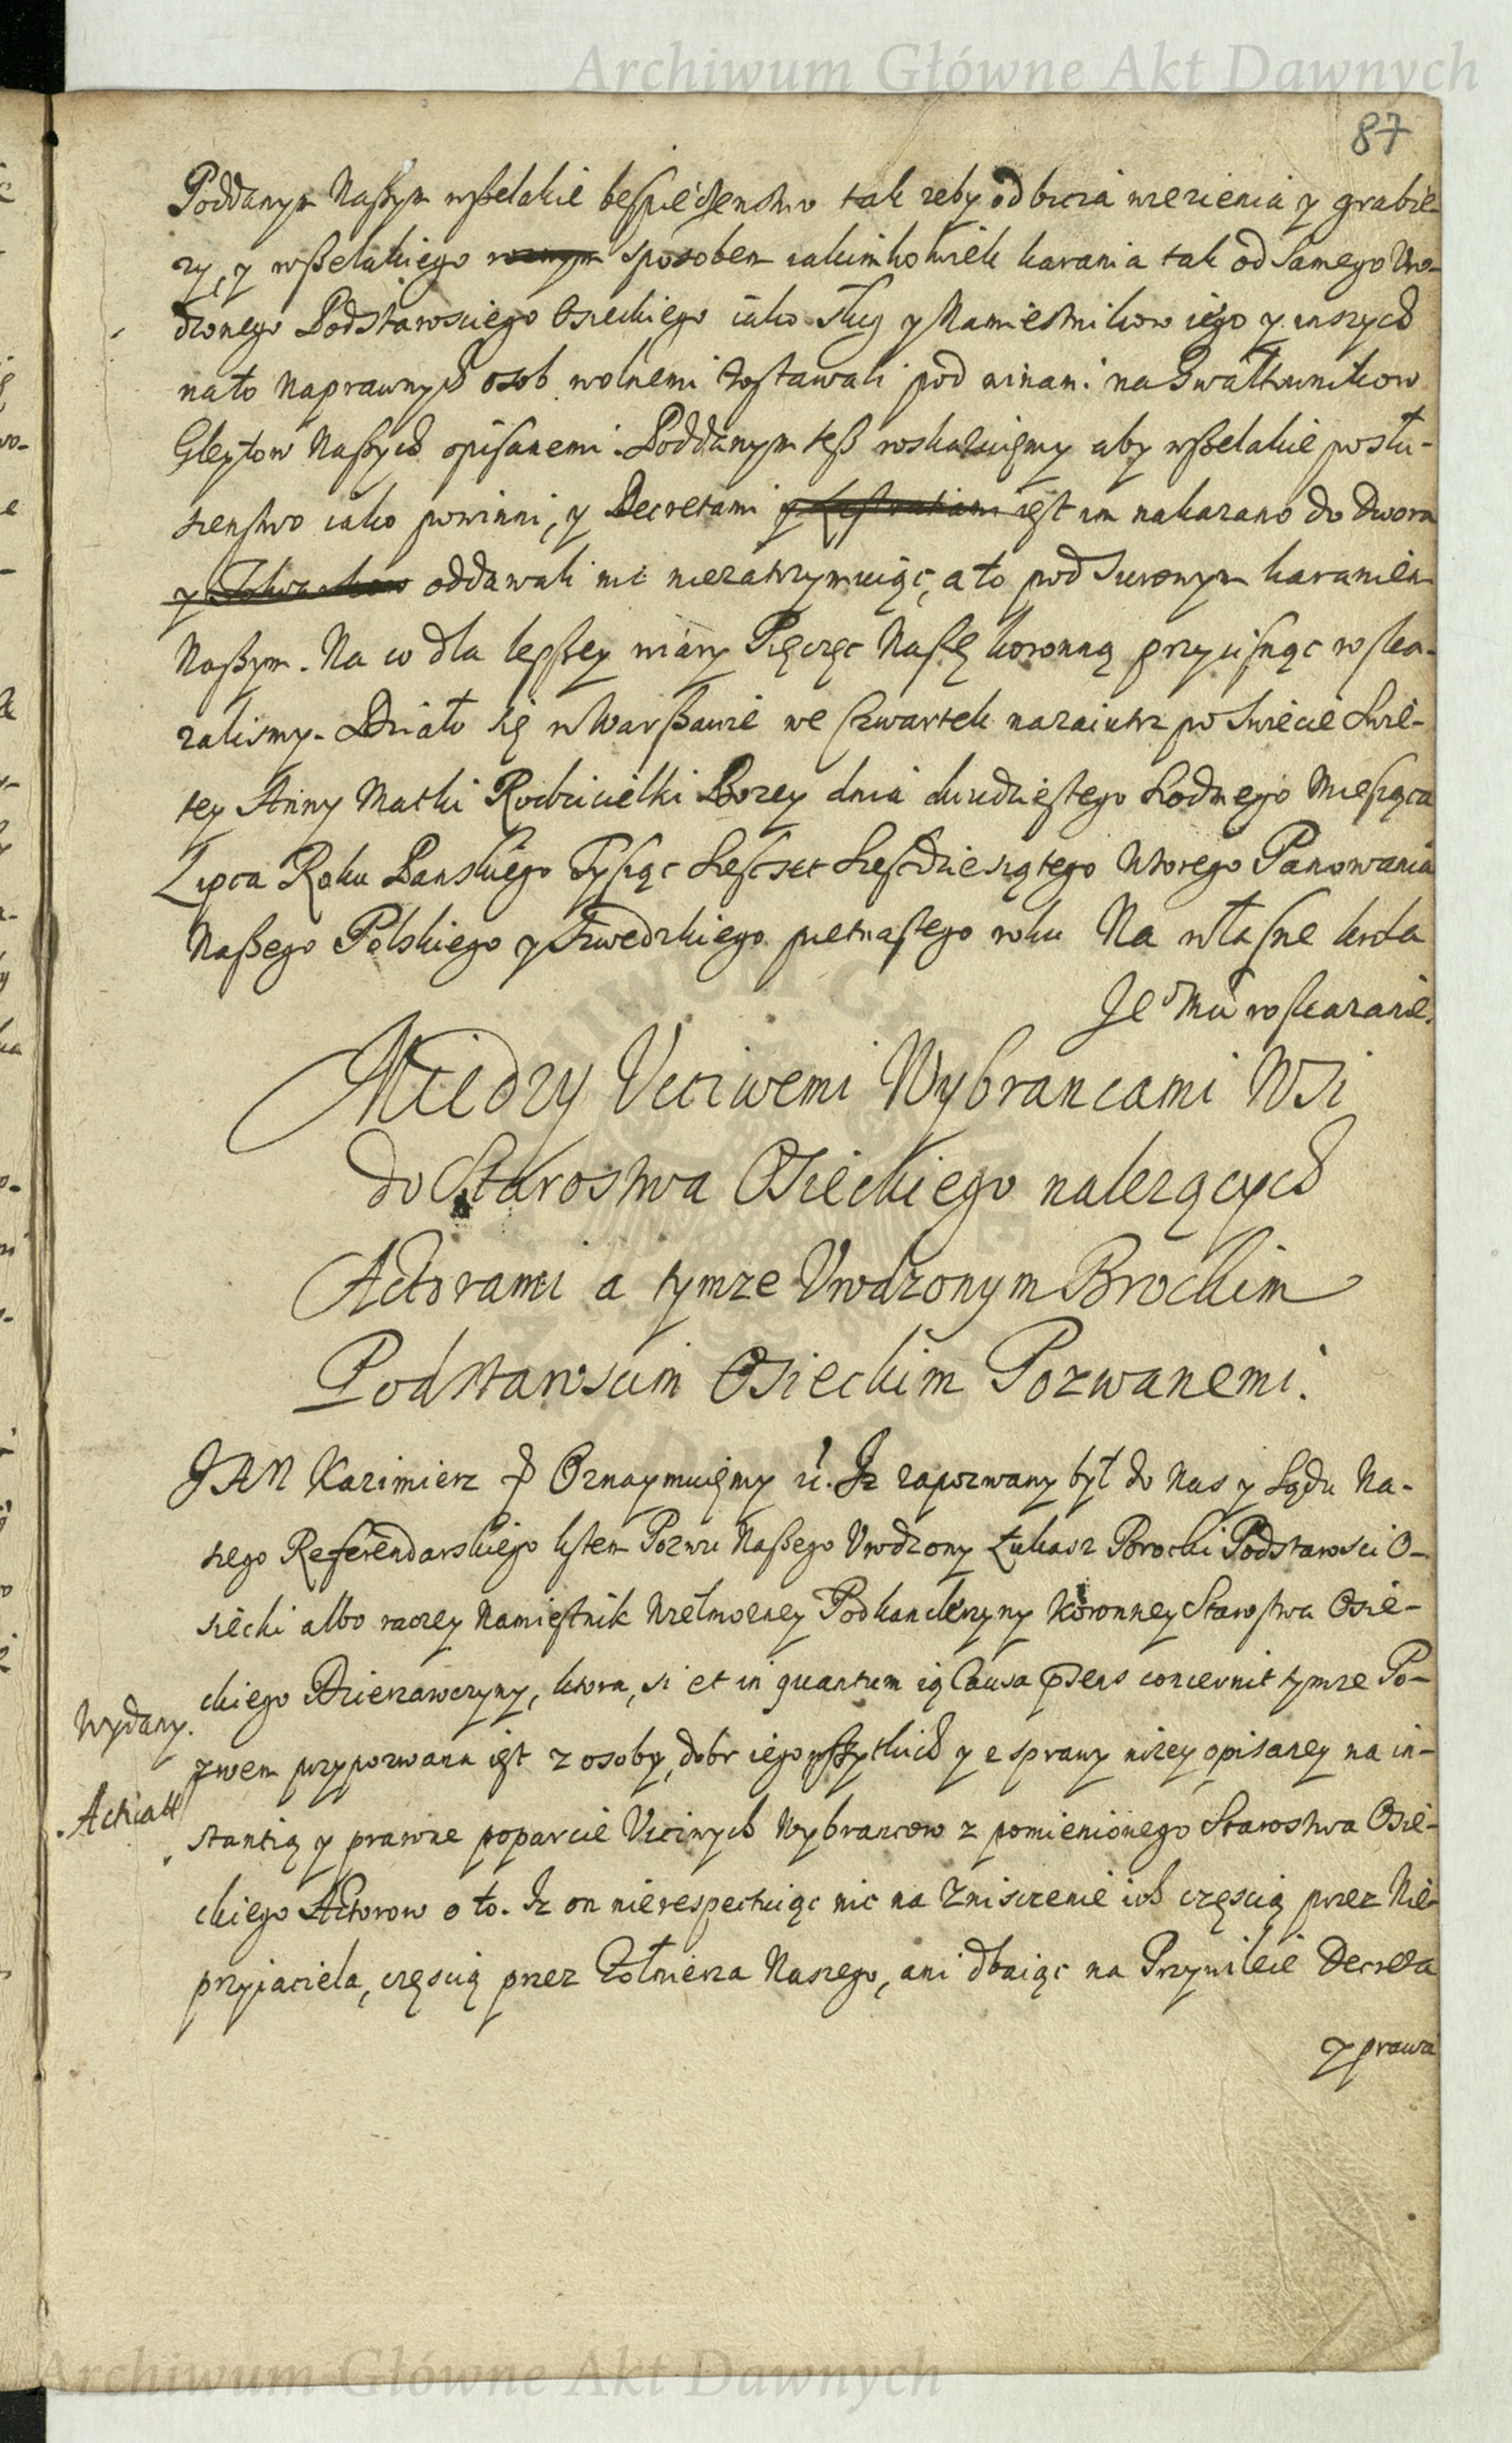 Archiwum Główne Akt Dawnych
87
Poddanym Naßym wßelakie bespieczenstwo tak zeby od bicia wiezienia y grabie-
zy, y wßelakiego sposobem iakimkolwiek karania tak od samego Vro-
dzonego Podstarosciego Osieckiego iako sług y Namiestnikow iego y inszych
na to naprawnych osob wolnemi zostawali pod winami na Gwałtownikow
Gleytow Naßych opisanemi. Poddanym teß roskazuięmy aby wßelakie posłu-
szenstwo iako powinni, y Decretami iest im nakazano do Dworu
oddawali nic niezatrzymuiąc, a to pod surowym karaniem
Naßym. Na co dla lepßey wiary Pięczęc Naßę koronną przycisnąc roska-
zalismy. Działo się w Warßawie we Czwartek nazaiutrz po Swiecie Swie-
tey Anny Matki Rodzicielki Bozey dnia dwudziestego Siodmego Miesiąca
Lipca Roku Panskiego Tysiąc Szescset Szescdziesiątego Wtorego Panowania
Naßego Polskiego y Szwedzkiego pietnastego roku Na własne krola
Je° Mci roskazanie.
Miedzy Vcciwemi Wybrancami Wsi
do Starostwa Osieckiego nalezących
Actorami a tymze Vrodzonym Brockim
Podstaroscim Osieckim Pozwanemi.
JAN Kazimierz Oznaymuięmy Iz zapozwany był do Nas y Sądu Na-
szego Referendarskiego listem Pozwu Naßego Vrodzony Łukasz Brocki Podstarosci O-
siecki albo raczey Namięstnik Wielmozney Podkanclerzyny Koronney Starostwa Osie-
ckiego Dzierzawczyny, ktora, si et in quantum ią Causa pſens concernit tymze Po-
Wydany.
zwem przypozwana iest z osoby, dobr iego wßytkich y e sprawy nizey opisaney na in-
Acticatt
stantią y prawne poparcie Vcciwych Wybrancow z pomienionego Starostwa Osie-
ckiego Actorow o to. Iz on nierespectuiąc nic na Zniszczenie ich częscią przez Nie-
przyjaciela, częscią przez Zołnierza Naszego, ani dbaiąc na Przywileie Decreta
y prawa
Archiwum Główne Akt Dawnych